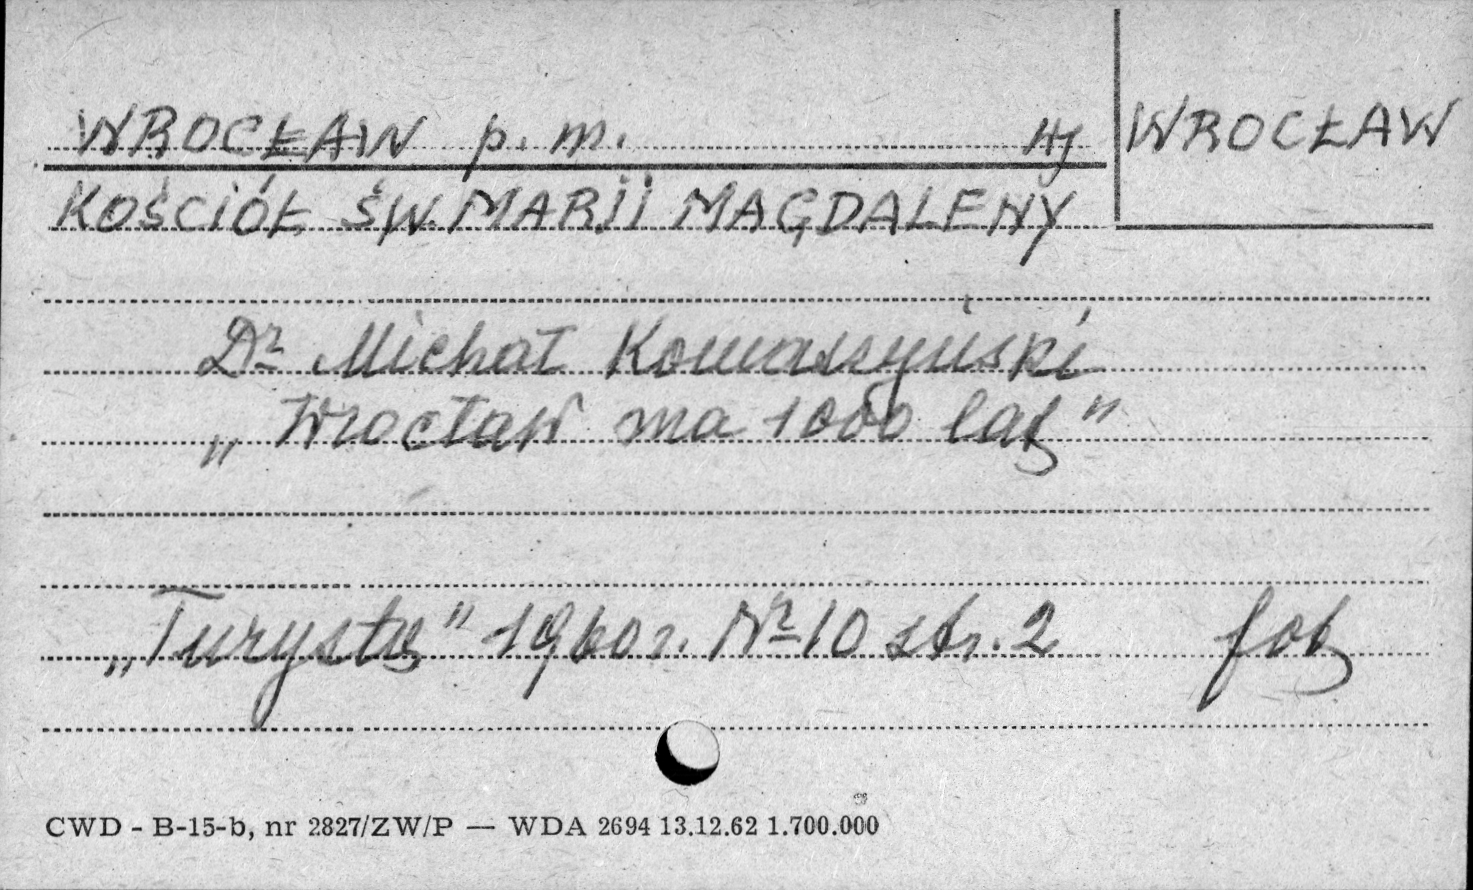 WROCŁAW p. m. HJ WROCŁAW
KOŚCIÓŁ ŚW. MARII MAGDALENY
Dr Michał Komaszyński
„Wrocław ma 1000 lat"
„Turysta" 1960 r. Nr 10 str. 2 fot
CWD - B-15-b, nr 2827/ZW/P — WDA 2694 13.12.62 1.700.000